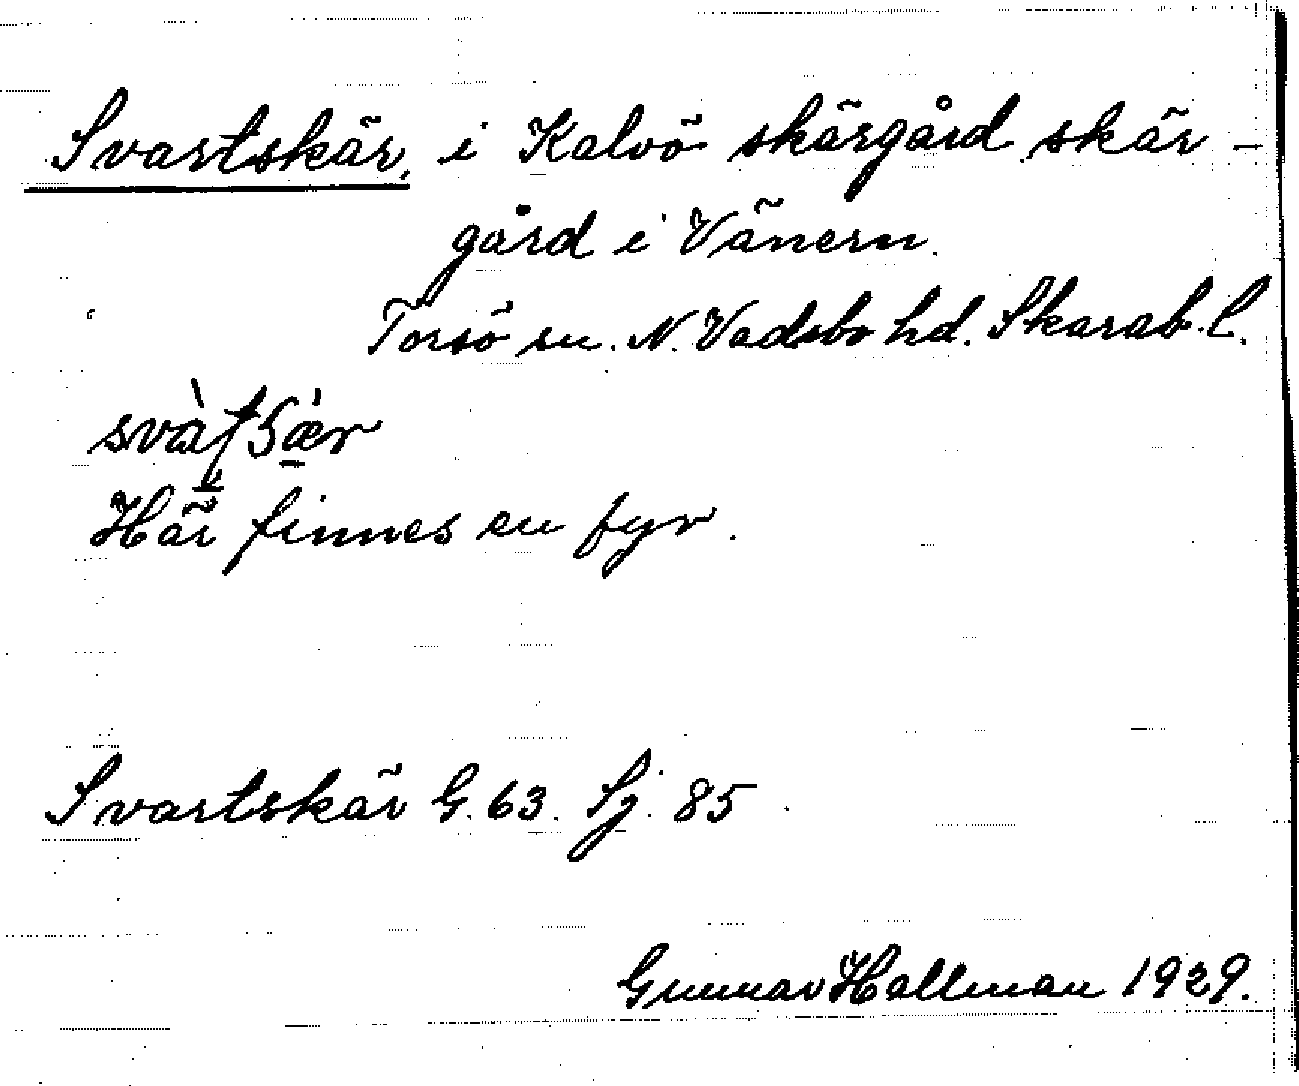 Svartskär, i Kalvö skärgård skär-
gård i Vänern.
Torsö sn. N. Vadsbo hd. Skarab. l.
Här finnes en fyr.
Svartskär G. 63. Sj. 85
Gunnar Hallman 1929.